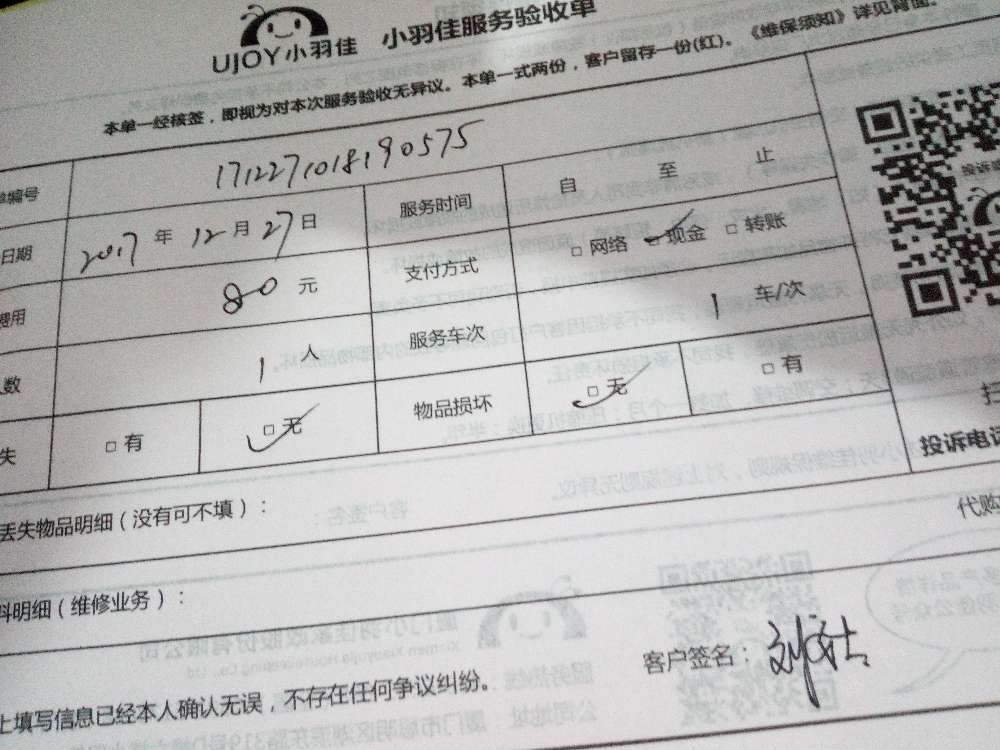 UJOY小羽佳 小羽佳服务验收单
本单一经核签，即视为对本次服务验收无异议。本单一式两份，客户留存一份(红)。《维保须知》详见背面。
编号 1712271018190575 服务时间 自 至 止
日期 2017 年 12 月 27 日 支付方式 □ 网络 □ 现金 □ 转账
费用 80 元 服务车次 1 车/次
人数 1 人 物品损坏 □ 无 □ 有
失 □ 有 □ 无
投诉电话
丢失物品明细（没有可不填）：
代购
料明细（维修业务）：
客户签名：
上填写信息已经本人确认无误，不存在任何争议纠纷。